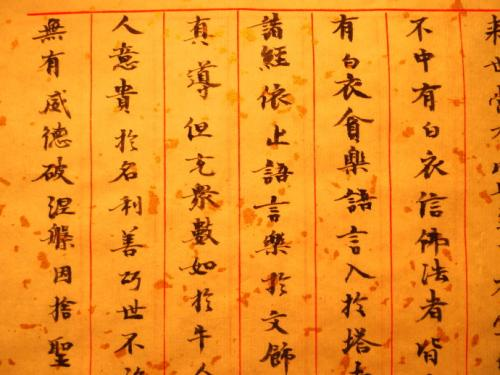 不中有白衣信佛法者皆
有白衣貪樂語言入於塔
諸經依止語言樂於文飾
真導但充衆數如於牛人
人意貴於名利善巧世不
無有威德破涅槃因捨聖